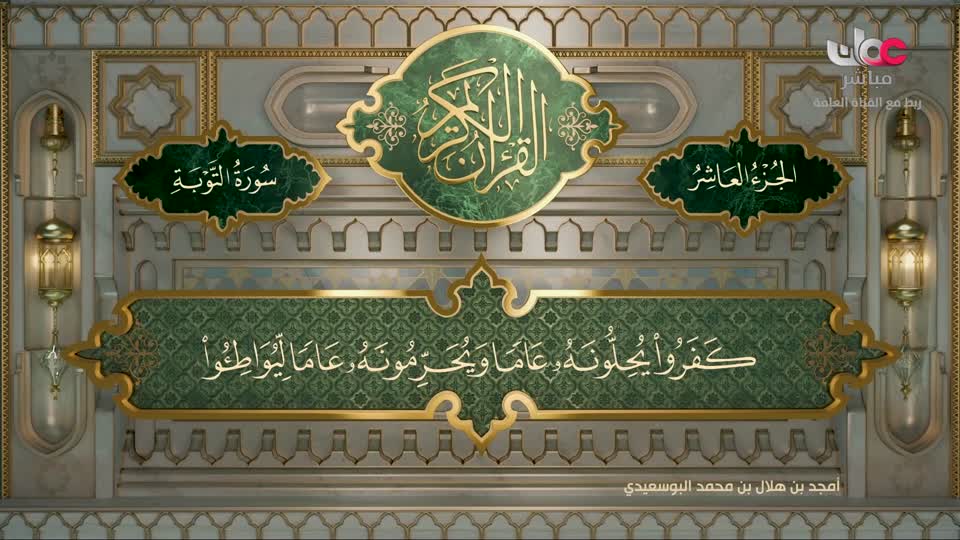 عمان
مباشر
ربط مع القناة العامة
القرآن الكريم
الجُزْءُ العَاشِرُ
سُورَةُ التَّوْبَةِ
كَفَرُواْ يُحِلُّونَهُۥ عَامٗا وَيُحَرِّمُونَهُۥ عَامٗا لِّيُوَاطِـُٔواْ
أمجد بن هلال بن محمد البوسعيدي